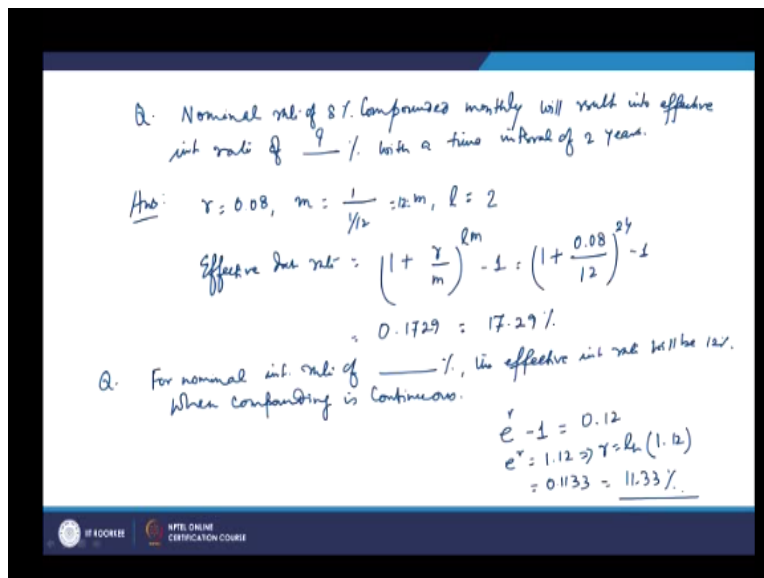 Q. Nominal rate of 8% Compounded monthly will result into effective
int rate of ? % with a time interval of 2 years.
Ans: r = 0.08, m = 1 / 1/12 = 12 m, l = 2
Effective Int rate = (1 + r/m)^lm - 1 = (1 + 0.08/12)^24 - 1
= 0.1729 = 17.29%
Q. For nominal int. rate of ____%, the effective int rate will be 12%.
when compounding is Continuous.
e^r - 1 = 0.12
e^r = 1.12 => r = ln (1.12)
= 0.1133 = 11.33%
IIT ROORKEE
NPTEL ONLINE
CERTIFICATION COURSE